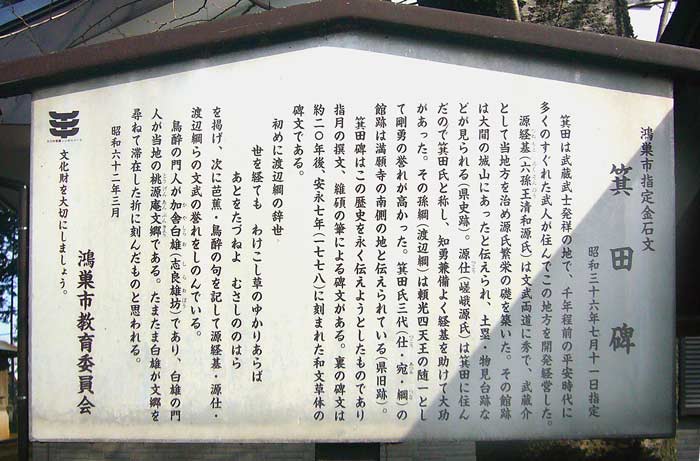 鴻巣市指定金石文
箕田碑
昭和三十六年七月十一日指定
箕田は武蔵武士発祥の地で、千年程前の平安時代に
多くのすぐれた武人が住んでこの地方を開発経営した。
源経基(六孫王清和源氏)は文武両道に秀で、武蔵介
として当地方を治め源氏繁栄の礎を築いた。その館跡
は大間の城山にあったと伝えられ、土塁・物見台跡な
どが見られる(県史跡)。源仕(嵯峨源氏)は箕田に住ん
だので箕田氏と称し、知勇兼備よく経基を助けて大功
があった。その孫綱(渡辺綱)は頼光四天王の随一とし
て剛勇の誉れが高かった。箕田氏三代(仕・宛・綱)の
館跡は満願寺の南側の地と伝えられている(県旧跡)。
箕田碑はこの歴史を永く伝えようとしたものであり
指月の撰文、維碩の筆による碑文がある。裏の碑文は
約二〇年後、安永七年(一七七八)に刻まれた和文草体の
碑文である。
初めに渡辺綱の辞世
世を経ても わけこし草のゆかりあらば
あとをたづねよ むさしののはら
を掲げ、次に芭蕉・鳥酔の句を記して源経基・源仕・
渡辺綱らの文武の誉れをしのんでいる。
鳥酔の門人が加舎白雄(志良雄坊)であり、白雄の門
人が当地の桃源庵文郷である。たまたま白雄が文郷を
尋ねて滞在した折に刻んだものと思われる。
昭和六十二年三月
鴻巣市教育委員会
文化財を大切にしましょう。